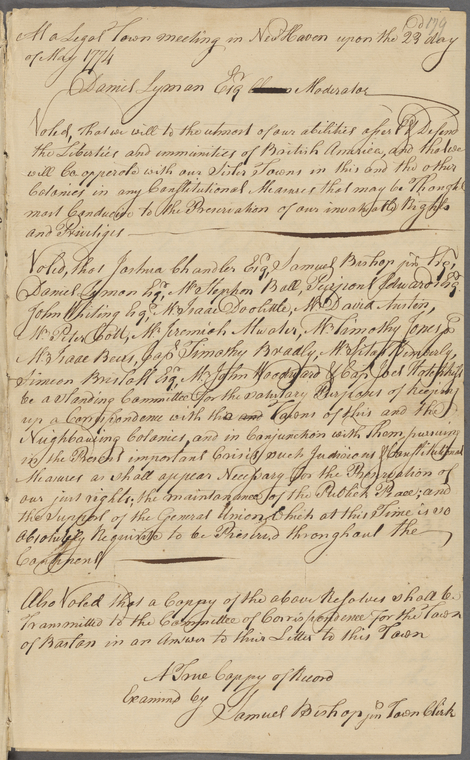 At a Legal Town meeting in New Haven upon the 23 day
of May 1774
Daniel Lyman Esqr Moderator
Voted, that we will to the utmost of our abilities assert & Defend
the Liberties and immunities of British America, and that we
will Co opperate with our Sister Towns in this and the other
Colonies in any Constitutional Measures that may be Thought
most Conducive to the Preservation of our invaluable Rights
and Priviliges
Voted, that Joshua Chandler Esqr Samuel Bishop junr Esqr
Daniel Lyman Esqr, Mr Stephen Ball, Pierpont Edwards Esqr
John Whiting Esqr Mr Isaac Doolittle, Mr David Austin,
Mr Peter Colt, Mr Jeremiah Atwater, Mr Timothy Jones jr
Mr Isaac Beers, Capt Timothy Bradly, Mr Silas Kimberly,
Simeon Bristoll Esqr, Mr John Woodward & Cap Joel Hotchkiss
be a Standing Committee for the salutary Purposes of keeping
up a Correspondence with the Towns of this and the
Neighbouring Colonies, and in Conjunction with them, pursuing
in the Present important Crisis, such Judicious & Constitutional
Measures as shall appear Necessary for the Preservation of
our just rights, the maintanance of the Publick Peace; and
the Support of the General Union, which at this Time is so
absolutely Requisite to be Preserved throughout the
Continent
Also Voted that a Coppy of the above Resolves shall be
Transmitted to the Committee of Correspondence for the Town
of Bostan in an Answer to their Letter to this Town
A True Coppy of Record
Examind by
Samuel Bishop junr Town Clerk